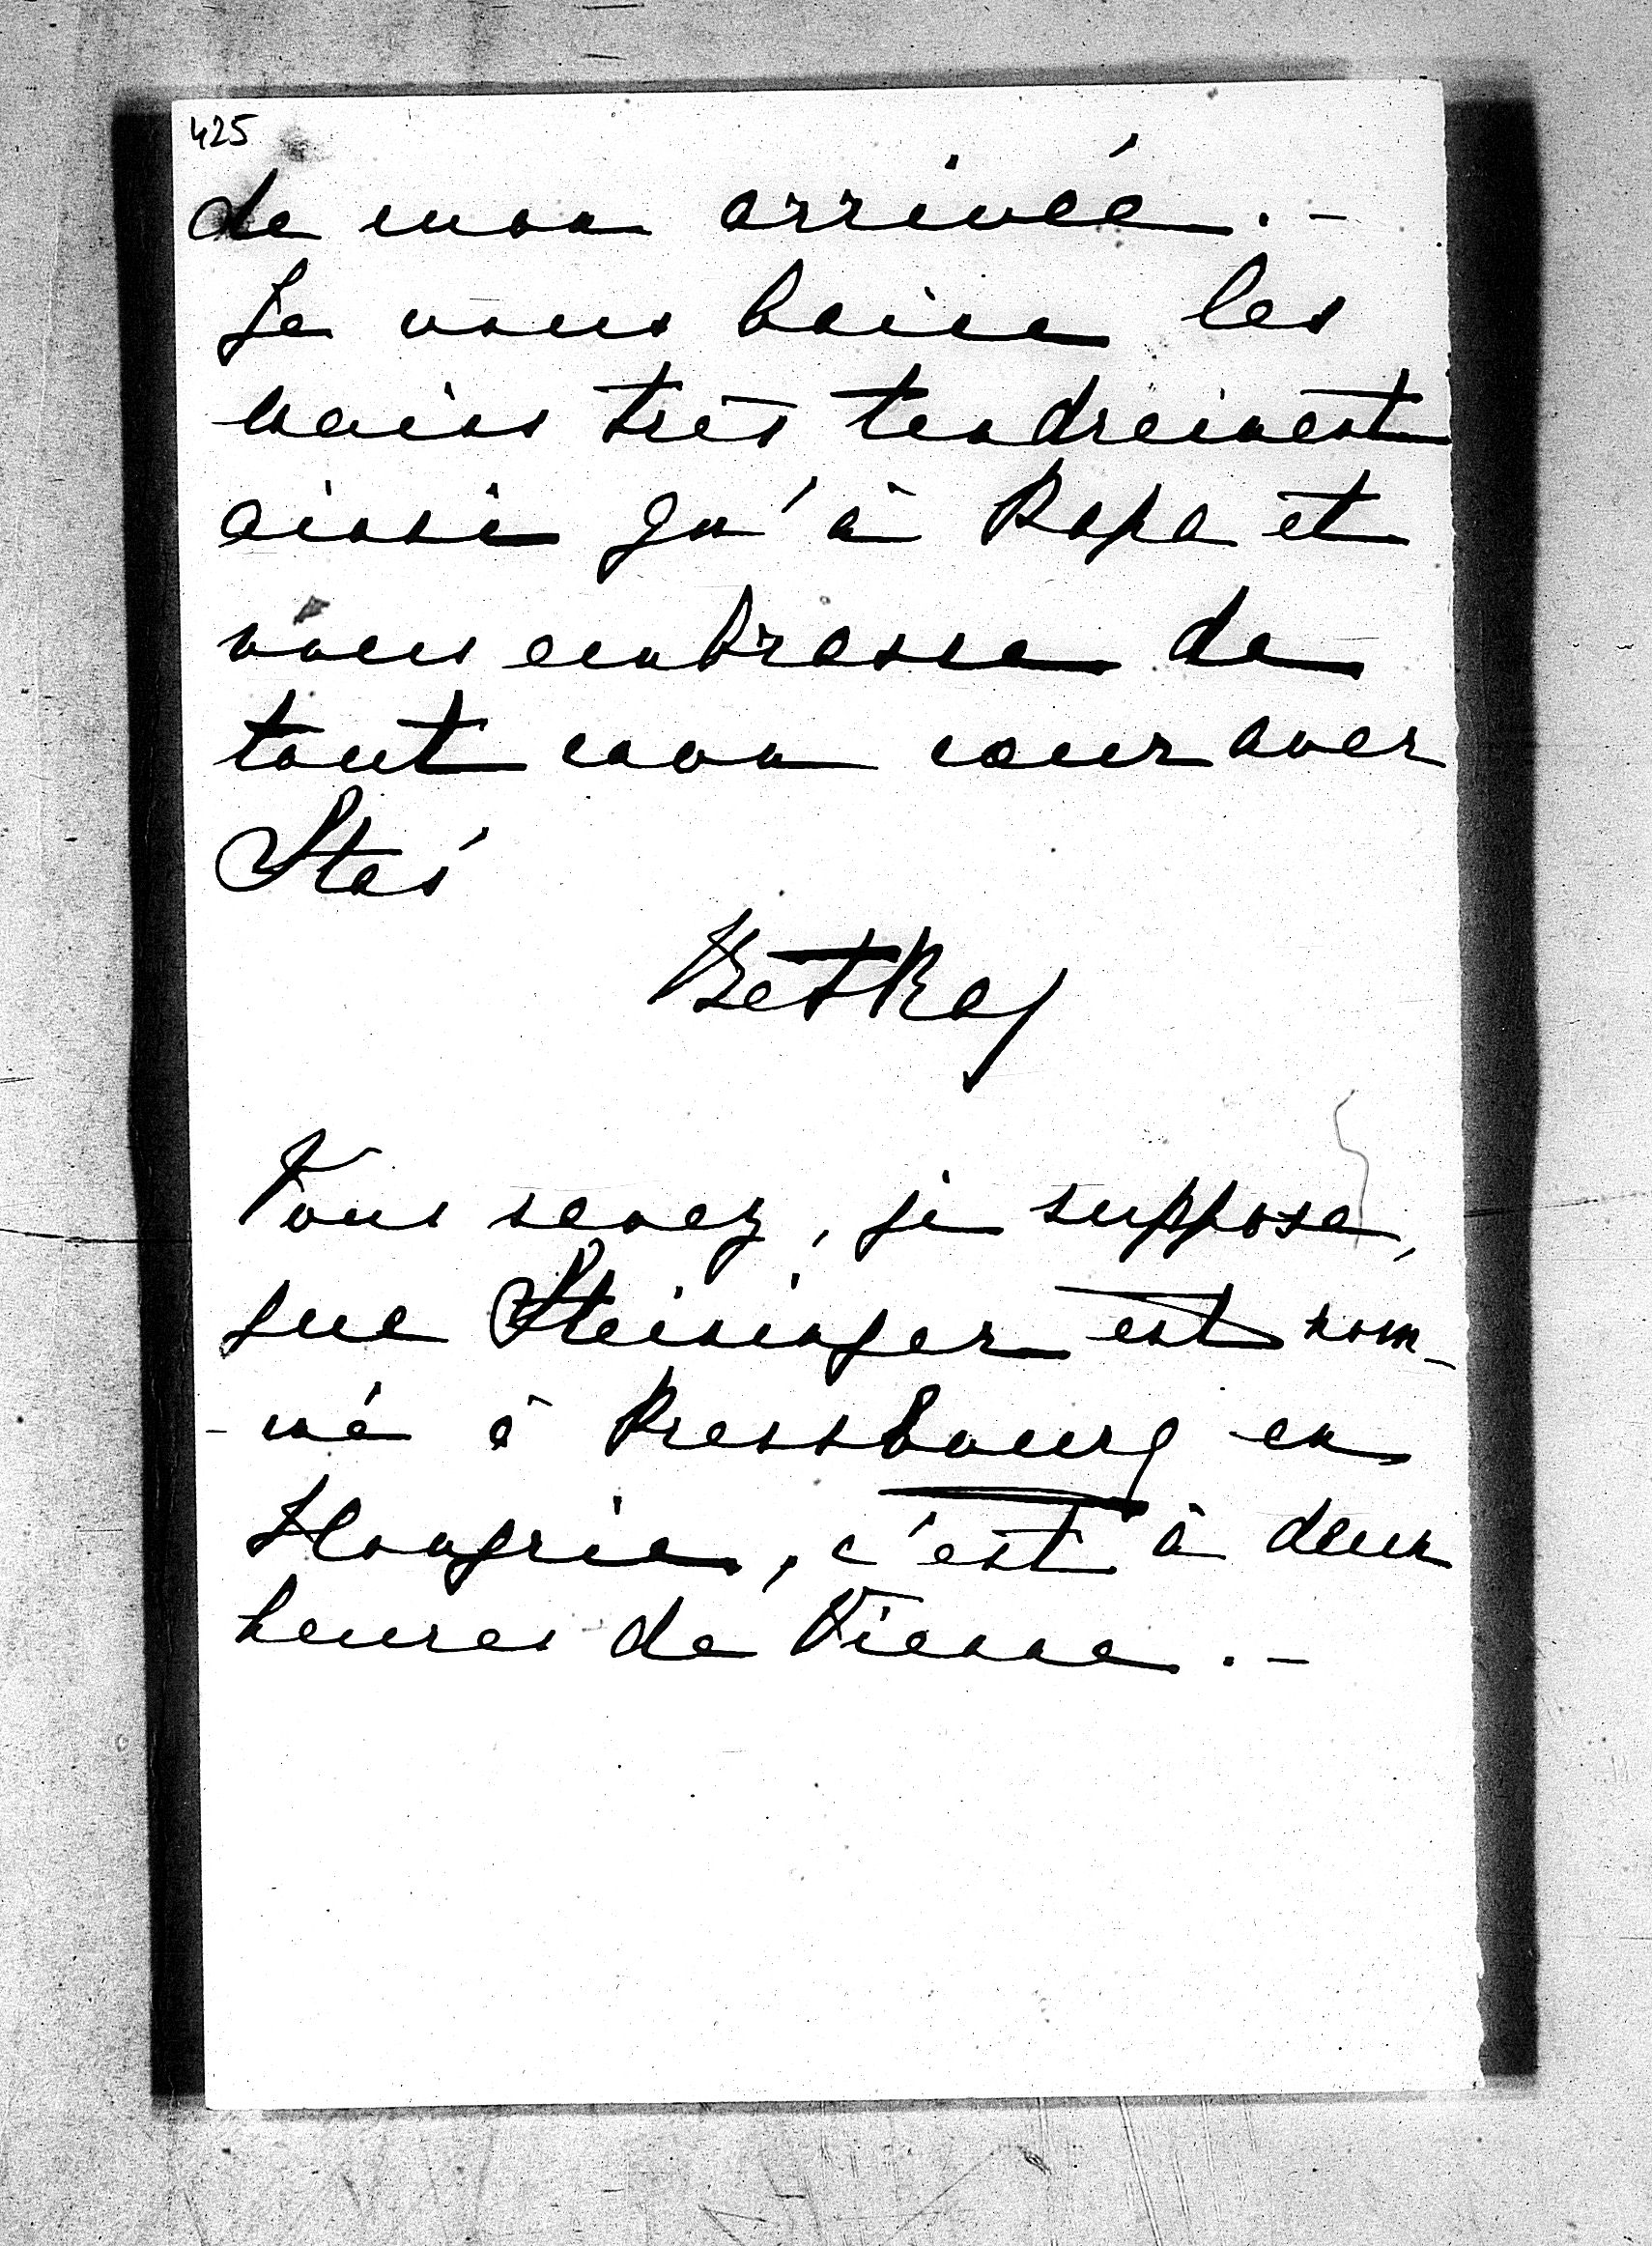 425
de mon arrivée. -
Je vous baise les
mains très tendrement
ainsi qu'à Papa et
vous embrasse de
tout mon cœur avec
Staś
Betka
Vous savez, je suppose,
que Steininger est nom-
- mé à Pressbourg en
Hongrie, c'est à deux
heures de Vienne. -